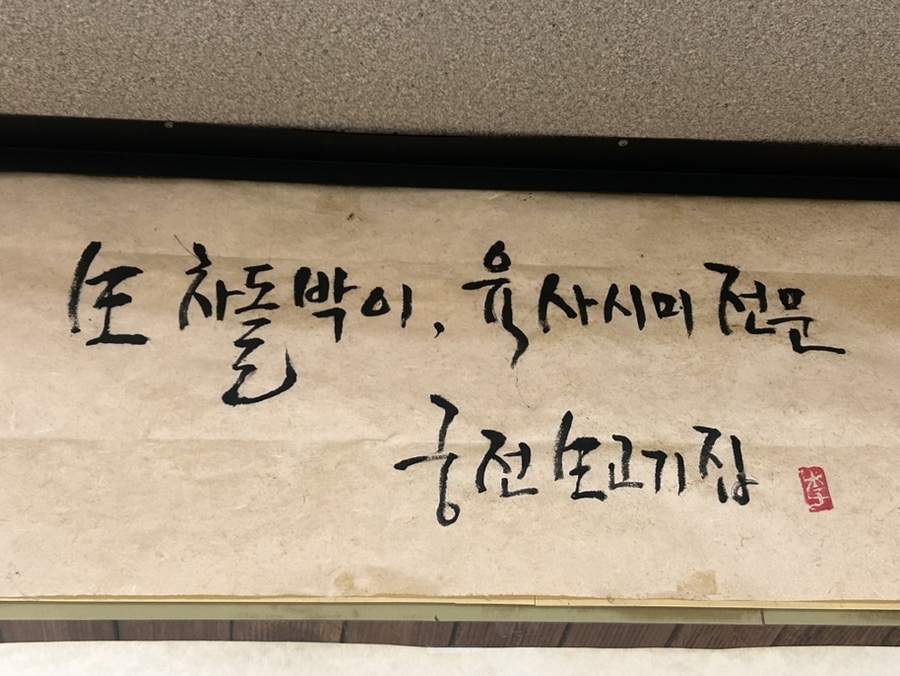 生 차돌박이, 육사시미 전문
궁전 生고기집
李